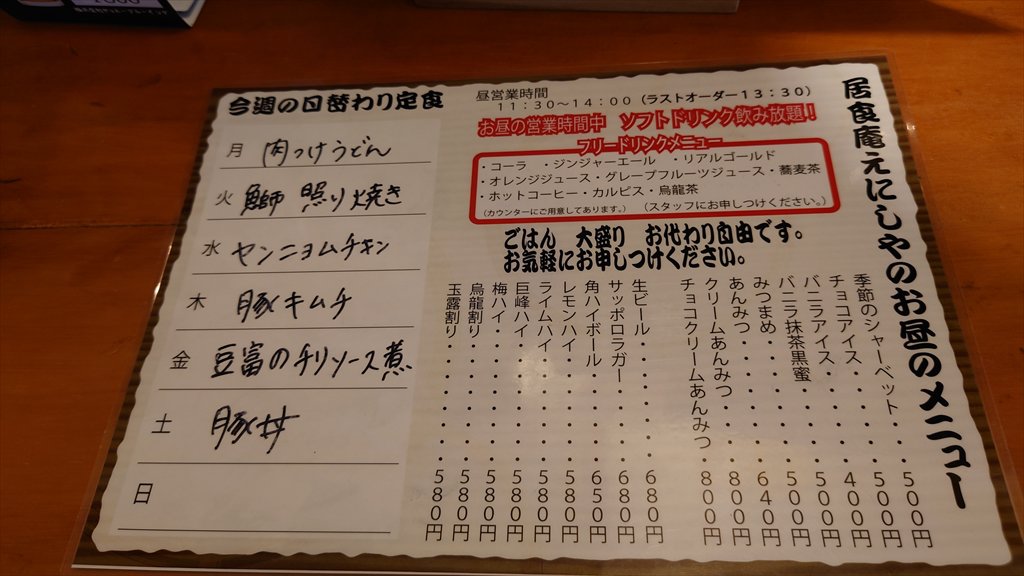 居食庵えにしやのお昼のメニュー
昼営業時間
11:30～14:00（ラストオーダー13:30）
お昼の営業時間中　ソフトドリンク飲み放題！
フリードリンクメニュー
・コーラ　・ジンジャーエール　・リアルゴールド
・オレンジジュース・グレープフルーツジュース・蕎麦茶
・ホットコーヒー・カルピス・烏龍茶
（カウンターにご用意してあります。）（スタッフにお申しつけください。）
ごはん　大盛り　お代わり自由です。
お気軽にお申しつけください。
季節のシャーベット・・・500円
チョコアイス・・・・・500円
バニラアイス・・・・・400円
バニラ抹茶黒蜜・・・・500円
みつまめ・・・・・・・500円
あんみつ・・・・・・・640円
クリームあんみつ・・・800円
チョコクリームあんみつ・800円
生ビール・・・・・・680円
サッポロラガー・・・680円
角ハイボール・・・・650円
レモンハイ・・・・・580円
ライムハイ・・・・・580円
巨峰ハイ・・・・・・580円
梅ハイ・・・・・・・580円
烏龍割り・・・・・・580円
玉露割り・・・・・・580円
今週の日替わり定食
月 肉つけうどん
火 鰤 照り焼き
水 ヤンニョムチキン
木 豚キムチ
金 豆富のチリソース煮
土 豚丼
日